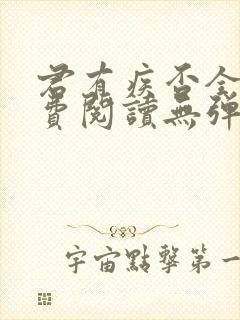 君有疾否全
費閱讀無彈
宇宙點擊第一